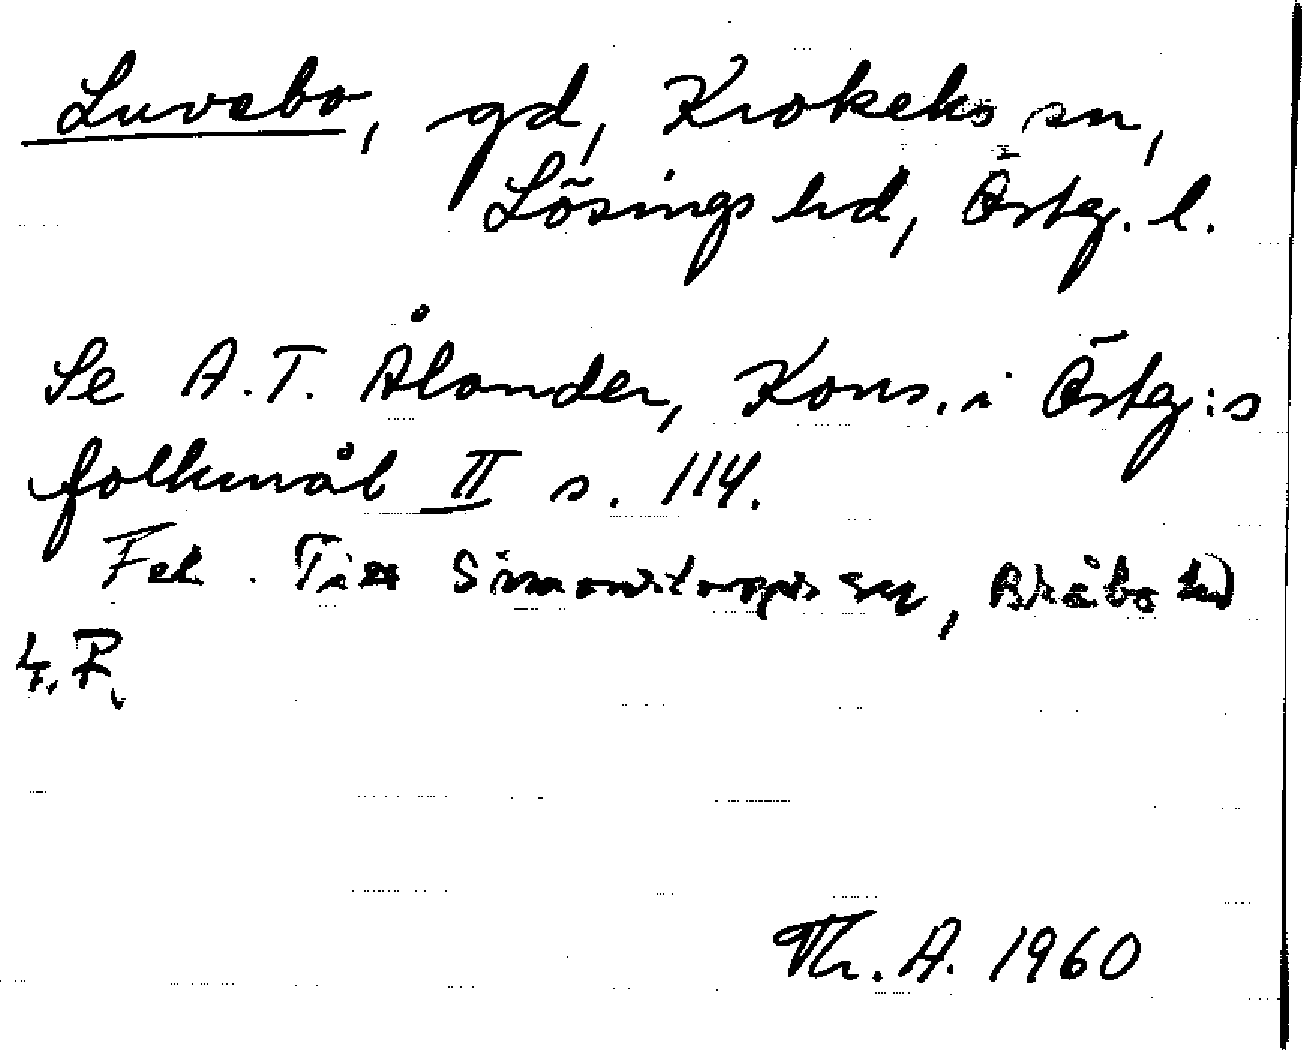 Luvebo, gd, Krokeks sn,
Lösings hd, Östg. l.
Se A. T. Ålander, Kons. i Östg:s
folkmål II s. 114.
Fel. Till Simonstorps sn, Bråbo hd
Th. A. 1960